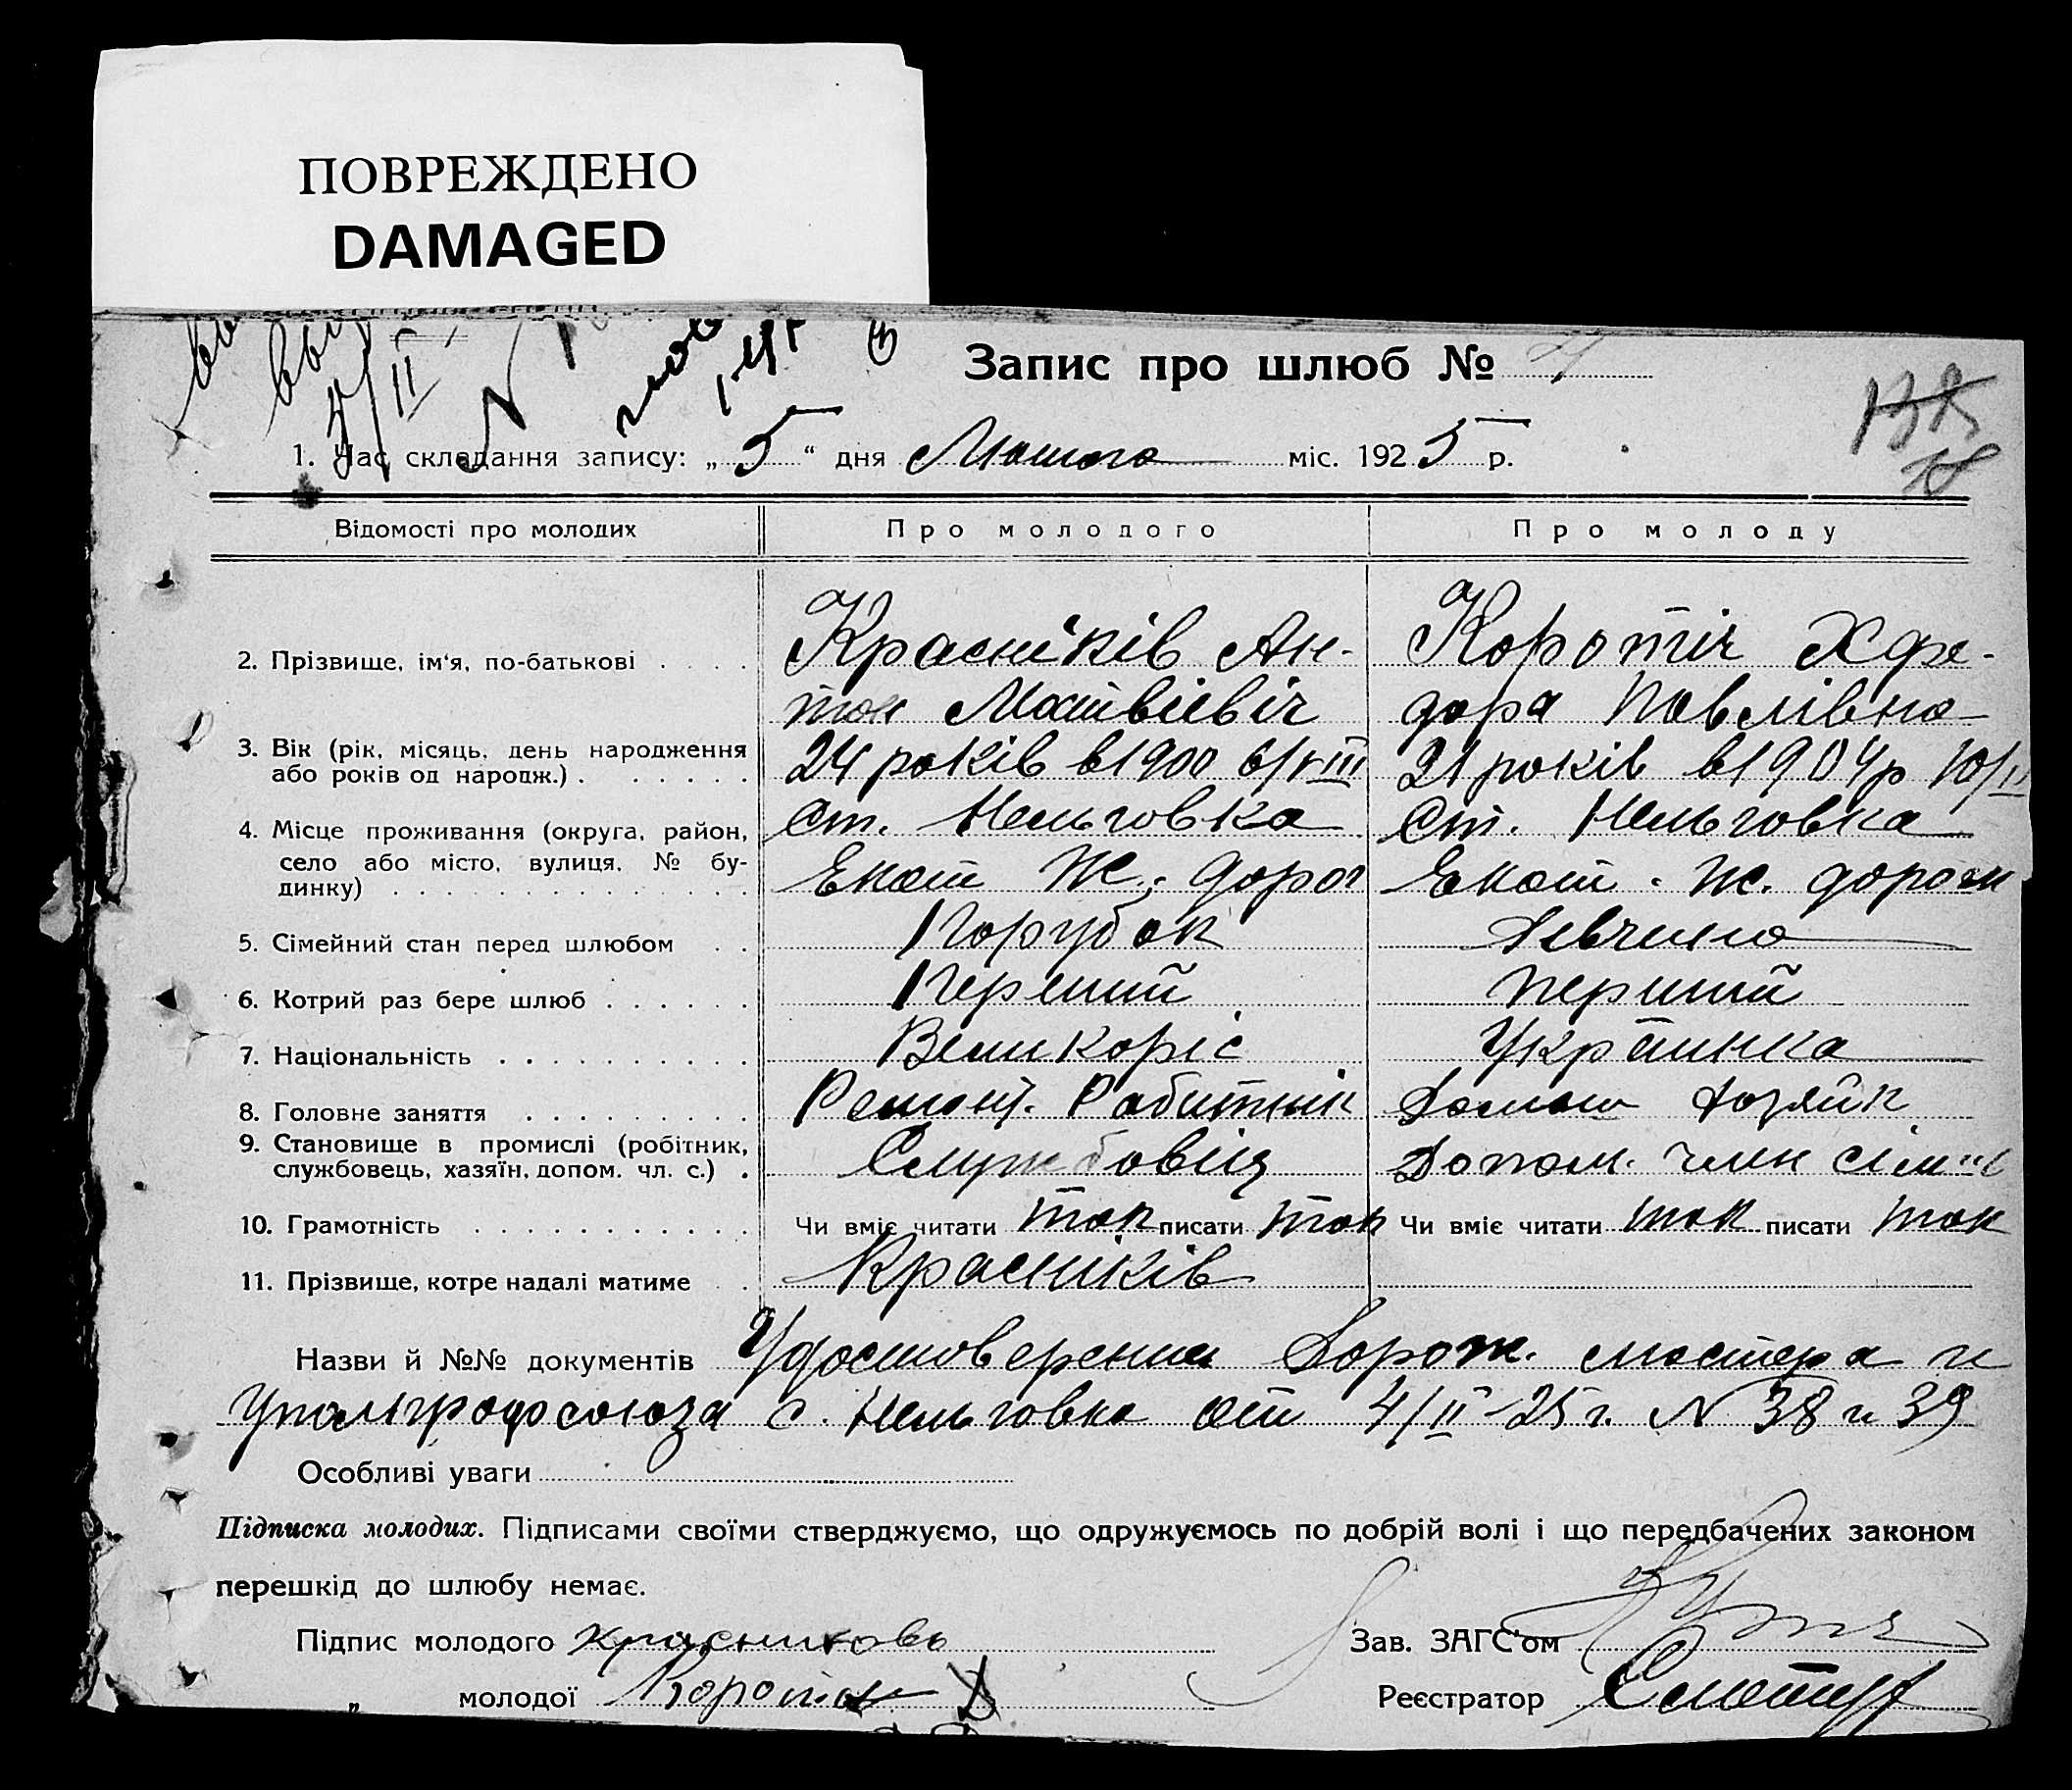 ПОВРЕЖДЕНО
DAMAGED
4/II
N
Запис про шлюб №
1. Час складання запису: „ 5 “ дня Лютого міс. 192 5 р.
Відомості про молодих Про молодого Про молоду
2. Прізвище, ім'я, по-батькові . . . . Красніків Ан- Коротіч Хфе-
тон Матвієвіч дора Павлівна
3. Вік (рік, місяць, день народження 24 років в 1900 6/VIII 21 років в 1904 р 10/II
або років од народж.) . . . . . .
4. Місце проживання (округа, район, ст. Нельговка ст. Нельговка
село або місто, вулиця, № бу- Екат Ж. дорог Екат. Ж. дорог
динку) . . . . . . . . . . . . . .
5. Сімейний стан перед шлюбом . . Порубок Девчина
6. Котрий раз бере шлюб . . . . . . Перший Перший
7. Національність . . . . . . . . . . Великоріс Украинка
8. Головне заняття . . . . . . . . . Ремонт. Работнік Домаш Хозяйк
9. Становище в промислі (робітник, Службовіц Допом. член сімї
службовець, хазяїн, допом. чл. с.) .
10. Грамотність . . . . . . . . . . . Чи вміє читати так писати так Чи вміє читати так писати так
11. Прізвище, котре надалі матиме . . Красніків
Назви й №№ документів Удостоверения Дорож. мастера и
Упалпрофсоюза с. Нельговка от 4/II-25 г. N 38 и 39
Особливі уваги
Підписка молодих. Підписами своїми стверджуємо, що одружуємось по добрій волі і що передбачених законом
перешкід до шлюбу немає.
Підпис молодого Красниковъ Зав. ЗАГС'ом
„ молодої Коротіч Реєстратор